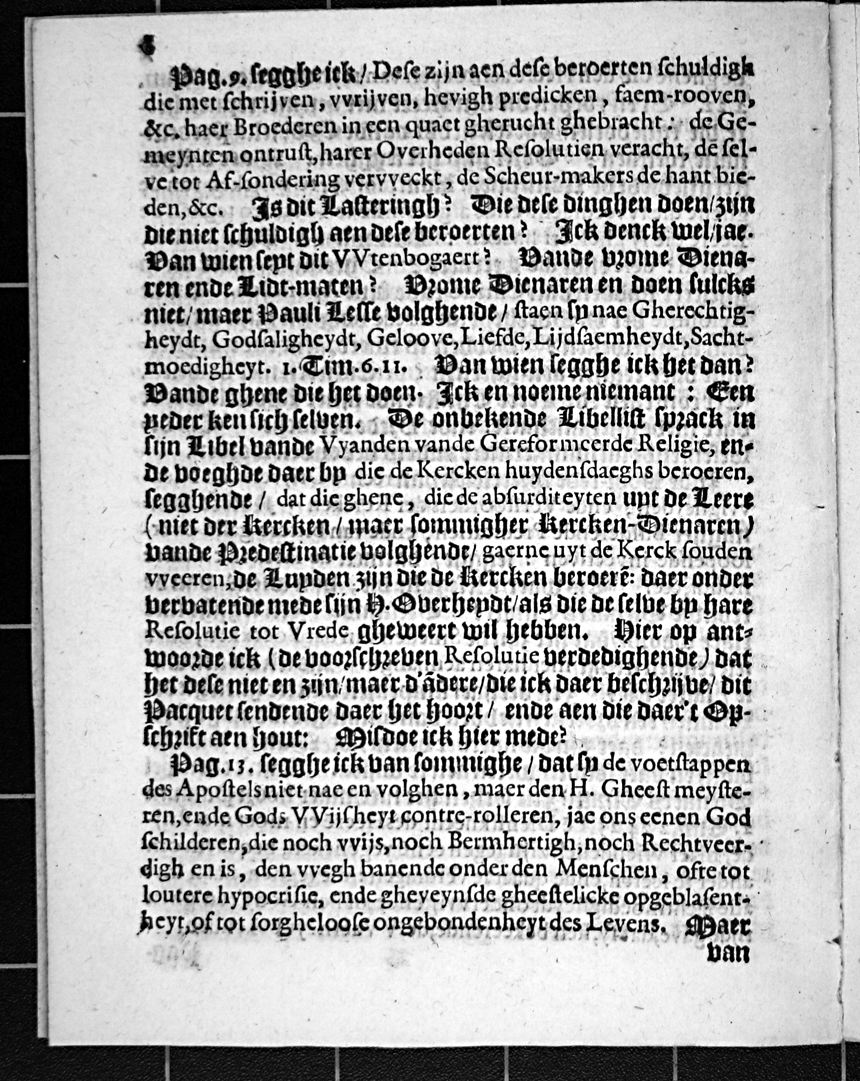 6
Pag. 9. segghe ick / Dese zijn aen dese beroerten schuldigh
die met schrijven, vvrijven, hevigh predicken, faem-rooven,
&c. haer Broederen in een quaet gherucht ghebracht: de Ge-
meynten ontrust, harer Overheden Resolutien veracht, de sel-
ve tot Af-sondering vervveckt, de Scheur-makers de hant bie-
den, &c. Is dit Lasteringh? Die dese dinghen doen/zijn
die niet schuldigh aen dese beroerten? Ick denck wel/jae.
Van wien seyt dit VVtenbogaert? Vande vrome Diena-
ren ende Lidt-maten? Vrome Dienaren en doen sulcks
niet/ maer Pauli Lesse volghende / staen sy nae Gherechtig-
heydt, Godsaligheydt, Geloove, Liefde, Lijdsaemheydt, Sacht-
moedigheyt. 1. Tim. 6. 11. Van wien segghe ick het dan?
Vande ghene die het doen. Ick en noeme niemant : Een
yeder ken sich selven. De onbekende Libellist sprack in
sijn Libel vande Vyanden vande Gereformeerde Religie, en-
de voeghde daer by die de Kercken huydensdaeghs beroeren,
segghende / dat die ghene, die de absurditeyten uyt de Leere
( niet der Kercken / maer sommigher Kercken-Dienaren )
vande Predestinatie volghende/ gaerne uyt de Kerck souden
vveeren, de Luyden zijn die de Kercken beroerē: daer onder
vervatende mede sijn H. Overheydt/als die de selve by hare
Resolutie tot Vrede gheweert wil hebben. Hier op ant-
woorde ick ( de voorschreven Resolutie verdedighende ) dat
het dese niet en zijn/maer d'ādere/die ick daer beschrijve/ dit
Pacquet sendende daer het hoort / ende aen die daer't Op-
schrift aen hout: Misdoe ick hier mede?
Pag. 13. segghe ick van sommighe / dat sy de voetstappen
des Apostels niet nae en volghen, maer den H. Gheest meyste-
ren, ende Gods VVijsheyt contre-rolleren, jae ons eenen God
schilderen, die noch vvijs, noch Bermhertigh, noch Rechtveer-
digh en is, den vvegh banende onder den Menschen, ofte tot
loutere hypocrisie, ende gheveynsde gheestelicke opgeblasent-
heyt, of tot sorgheloose ongebondenheyt des Levens. Maer
van